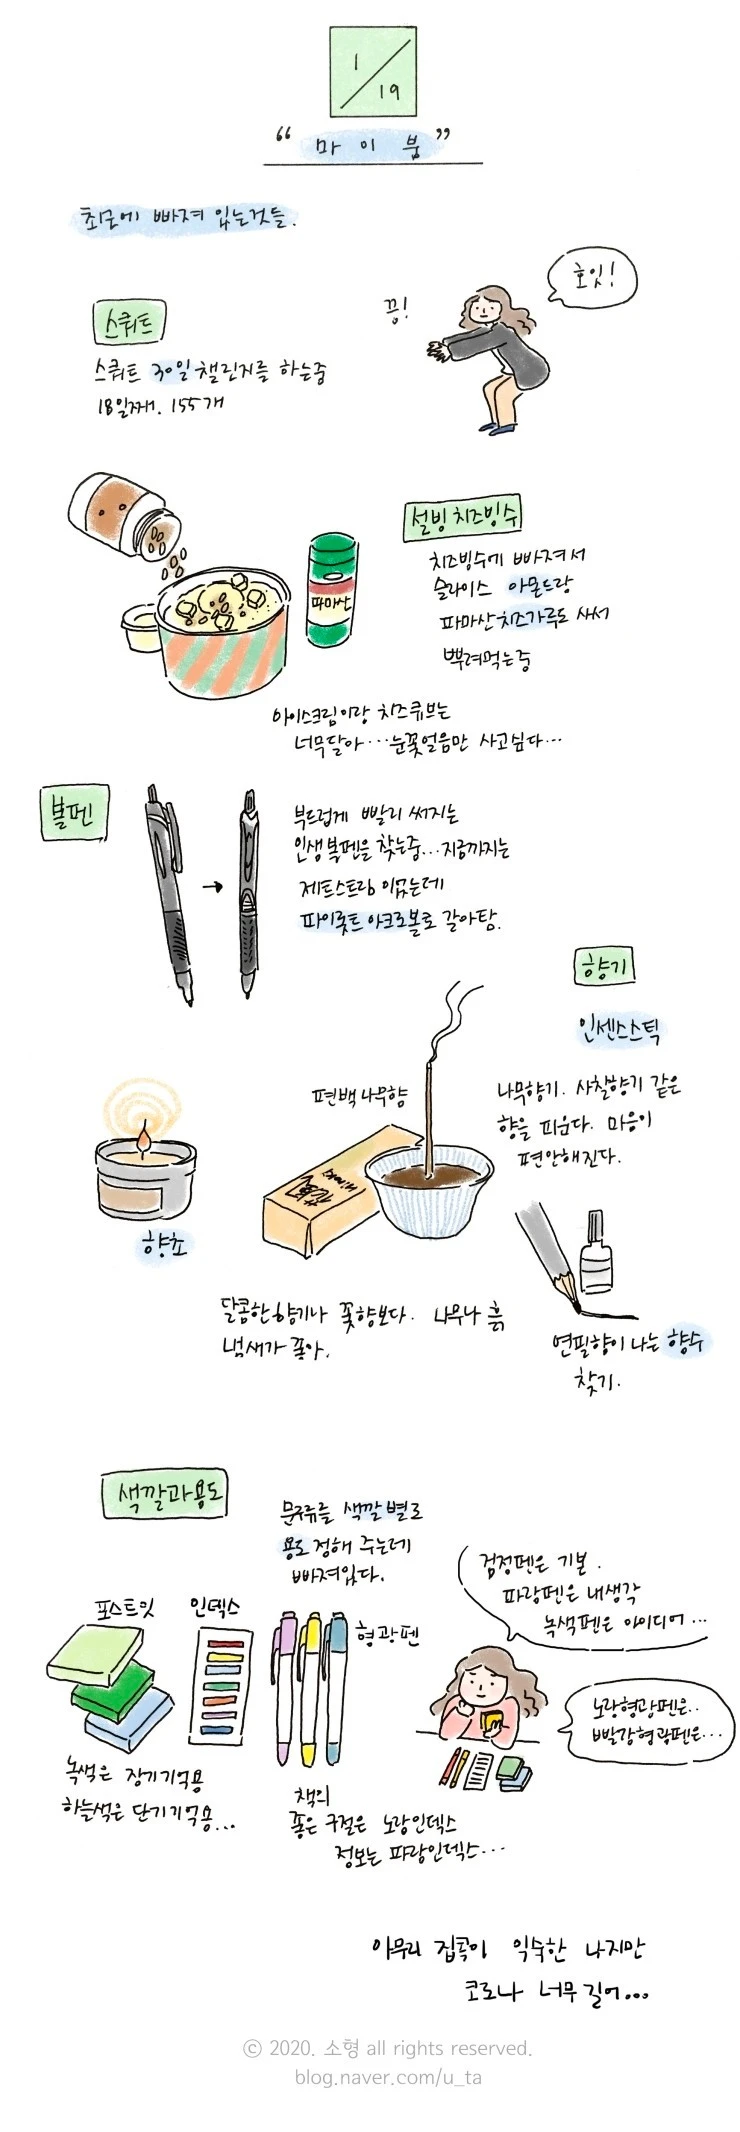 1/19
“마이붐”
최근에 빠져 있는것들.
스쿼트
스쿼트 30일 챌린지를 하는중
18일째. 155개
끙!
호잇!
설빙 치즈빙수
치즈빙수에 빠져서
슬라이스 아몬드랑
파마산치즈가루도 사서
뿌려먹는중
파마산
아이스크림이랑 치즈큐브는
너무달아...눈꽃얼음만 사고싶다...
볼펜
부드럽게 빨리 써지는
인생볼펜을 찾는중...지금까지는
제트스트림 이었는데
파이롯트 아크로볼로 갈아탐.
향기
인센스스틱
나무향기. 사찰향기 같은
향을 피운다. 마음이
편안해진다.
편백나무향
Hinoki
향초
달콤한향기나 꽃향보다. 나무나 흙
냄새가 좋아.
연필향이 나는 향수
찾기.
색깔과용도
문구류를 색깔별로
용도 정해 주는데
빠져있다.
포스트잇
인덱스
형광펜
녹색은 장기기억용
하늘색은 단기기억용...
책의
좋은 구절은 노랑인덱스
정보는 파랑인덱스...
검정펜은 기본.
파랑펜은 내생각
녹색펜은 아이디어...
노랑형광펜은..
빨강형광펜은...
아무리 집콕이 익숙한 나지만
코로나 너무 길어...
© 2020. 소형 all rights reserved.
blog.naver.com/u_ta